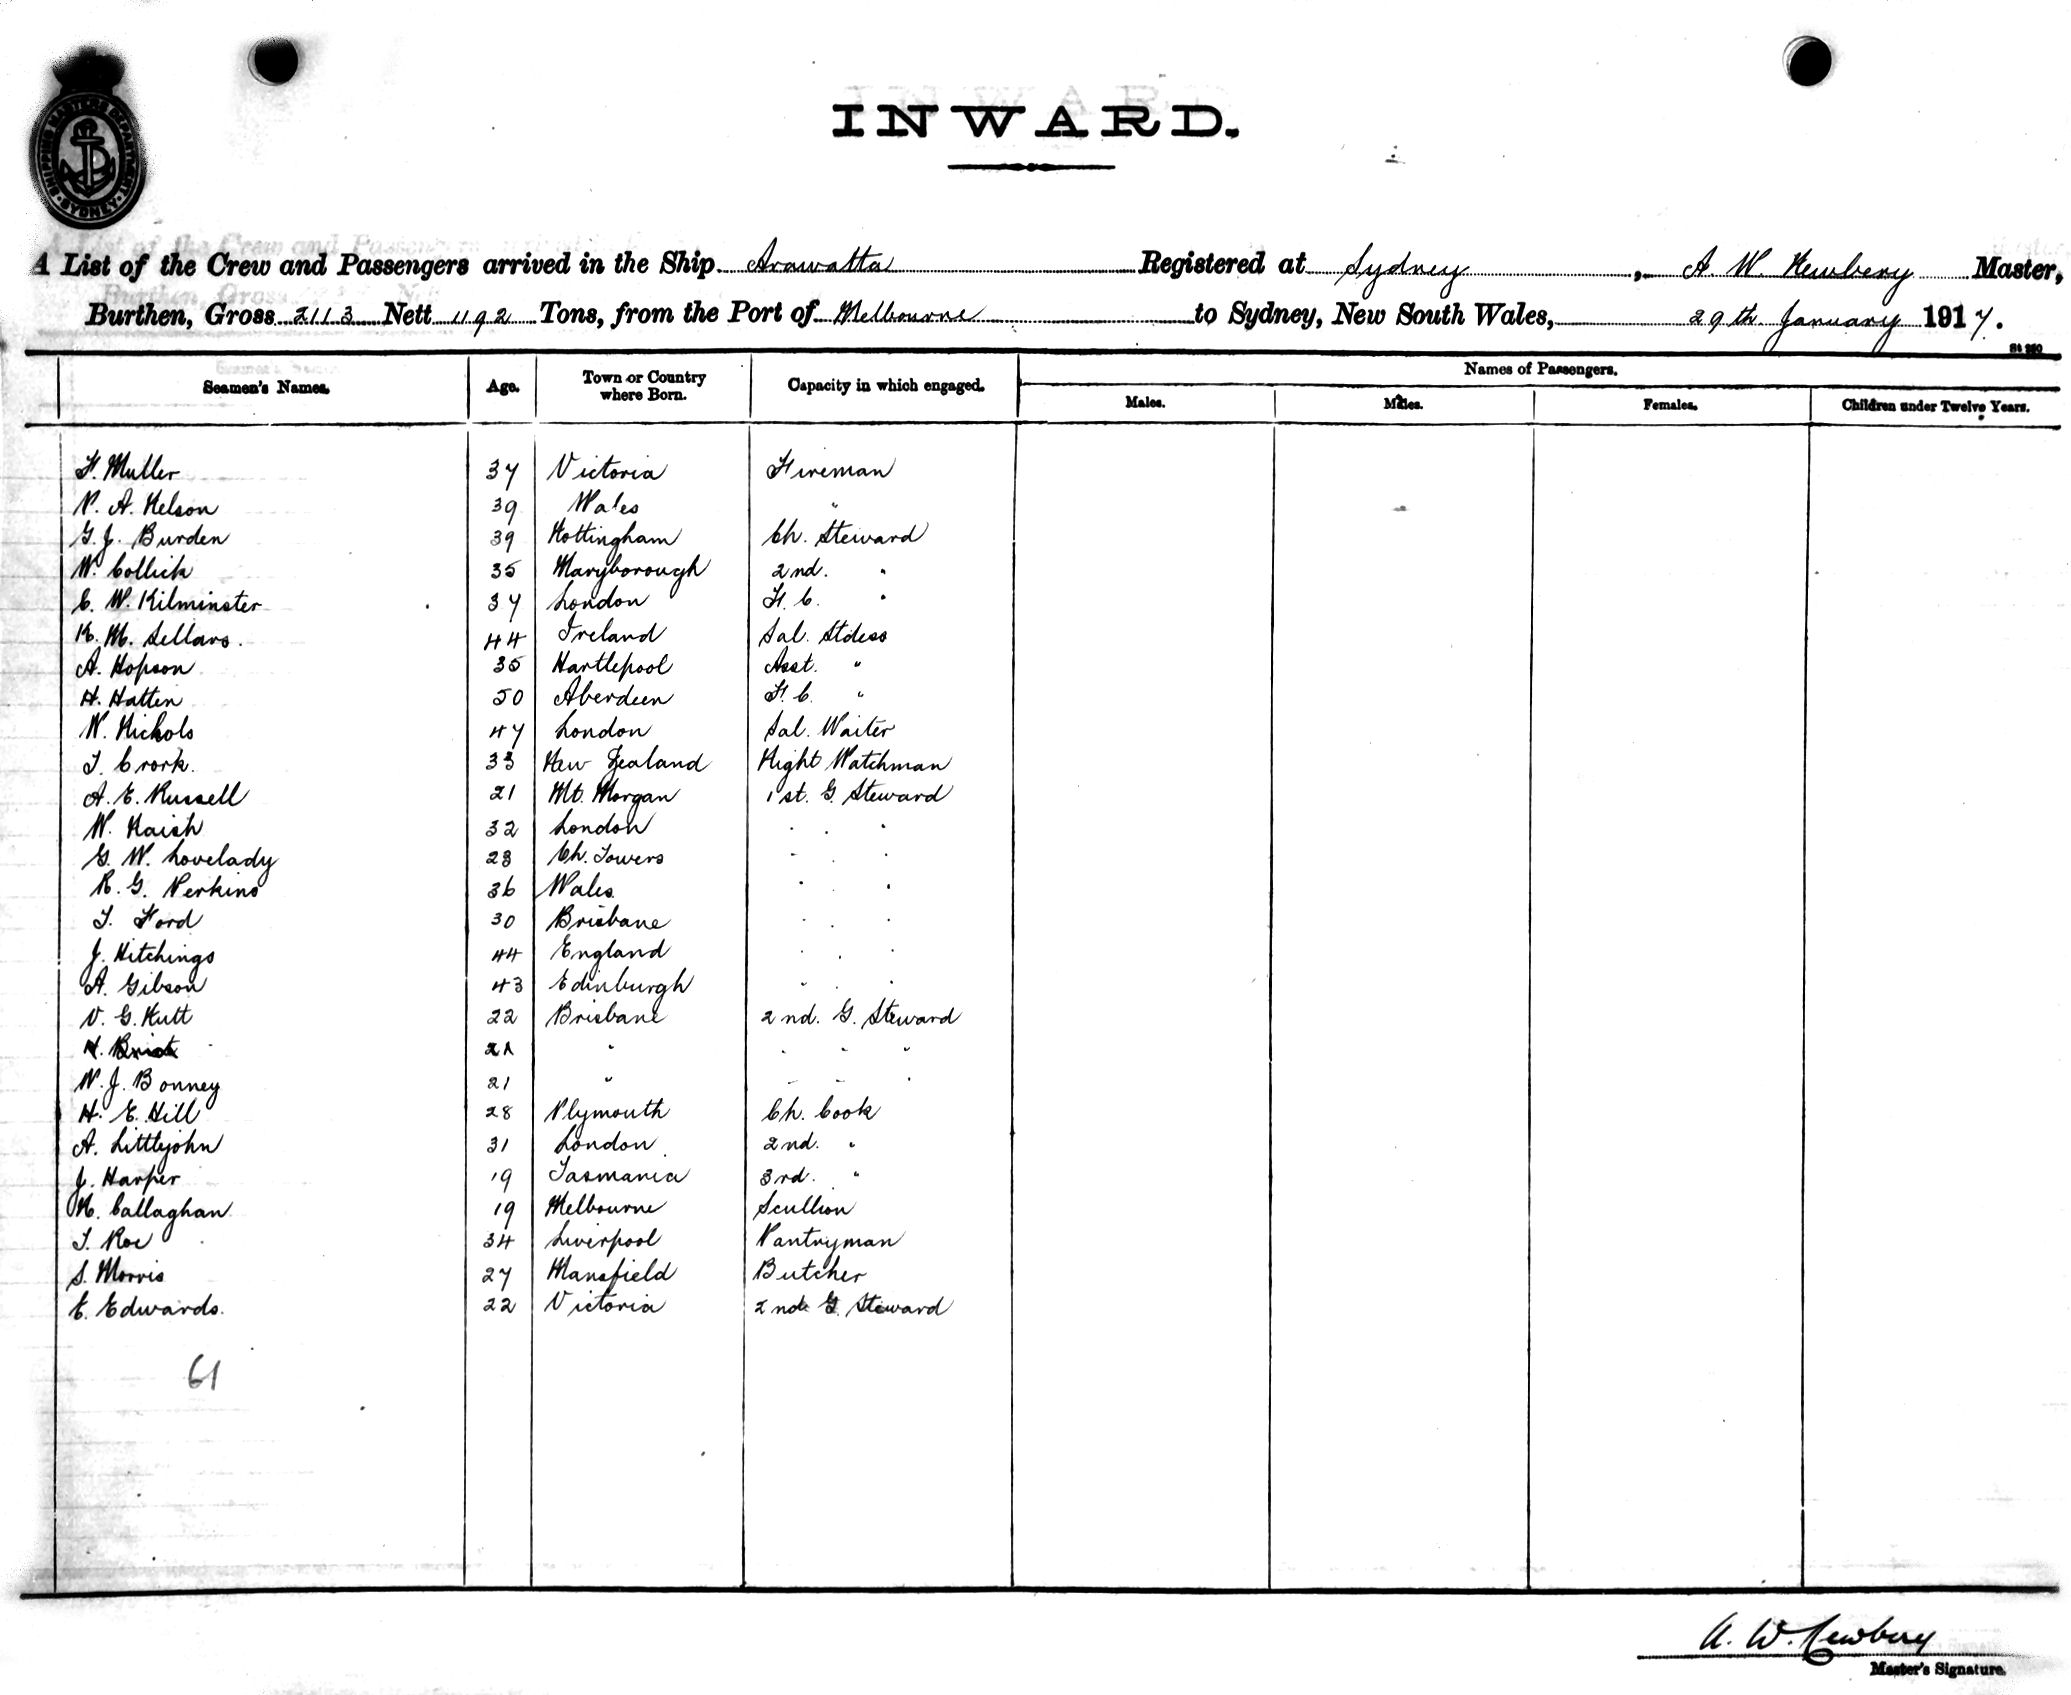 SHIPPING MASTERS DEPARTMENT
SYDNEY
INWARD.
A List of the Crew and Passengers arrived in the Ship Arawatta Registered at Sydney, A. W. Newbery Master,
Burthen, Gross 2113 Nett 1192 Tons, from the Port of Melbourne to Sydney, New South Wales, 29th January 1917.
Seamen's Names. Age. Town or Country where Born. Capacity in which engaged. Names of Passengers.
Males. Males. Females. Children under Twelve Years.
F. Muller 37 Victoria Fireman
P. A. Nelson 39 Wales "
G. J. Burden 39 Nottingham Ch. Steward
W. Collick 35 Maryborough 2nd. "
C. W. Kilminster 37 London F. C. "
K. M. Sellars. 44 Ireland Sal. Stdess
A. Hopson 35 Hartlepool Asst. "
H. Hatten 50 Aberdeen F. C. "
W. Nichols 47 London Sal. Waiter
T. Crork. 33 New Zealand Night Watchman
A. E. Russell 21 Mt. Morgan 1st. G. Steward
W. Naish 32 London " " "
G. W. Lovelady 23 Ch. Towers " " "
R. G. Perkins 36 Wales. " " "
T. Ford 30 Brisbane " " "
J. Hitchings 44 England " " "
A. Gibson 43 Edinburgh " " "
V. G. Nutt 22 Brisbane 2nd. G. Steward
21 " " " "
W. J. Bonney 21 " " " "
H. E. Hill 28 Plymouth Ch. Cook
A. Littlejohn 31 London 2nd. "
J. Harper 19 Tasmania 3rd. "
Callaghan 19 Melbourne Scullion
T. Roe 34 Liverpool Pantryman
S. Morris 27 Mansfield Butcher
E. Edwards. 22 Victoria 2nd G. Steward
61
A. W. Newbery
Master's Signature.